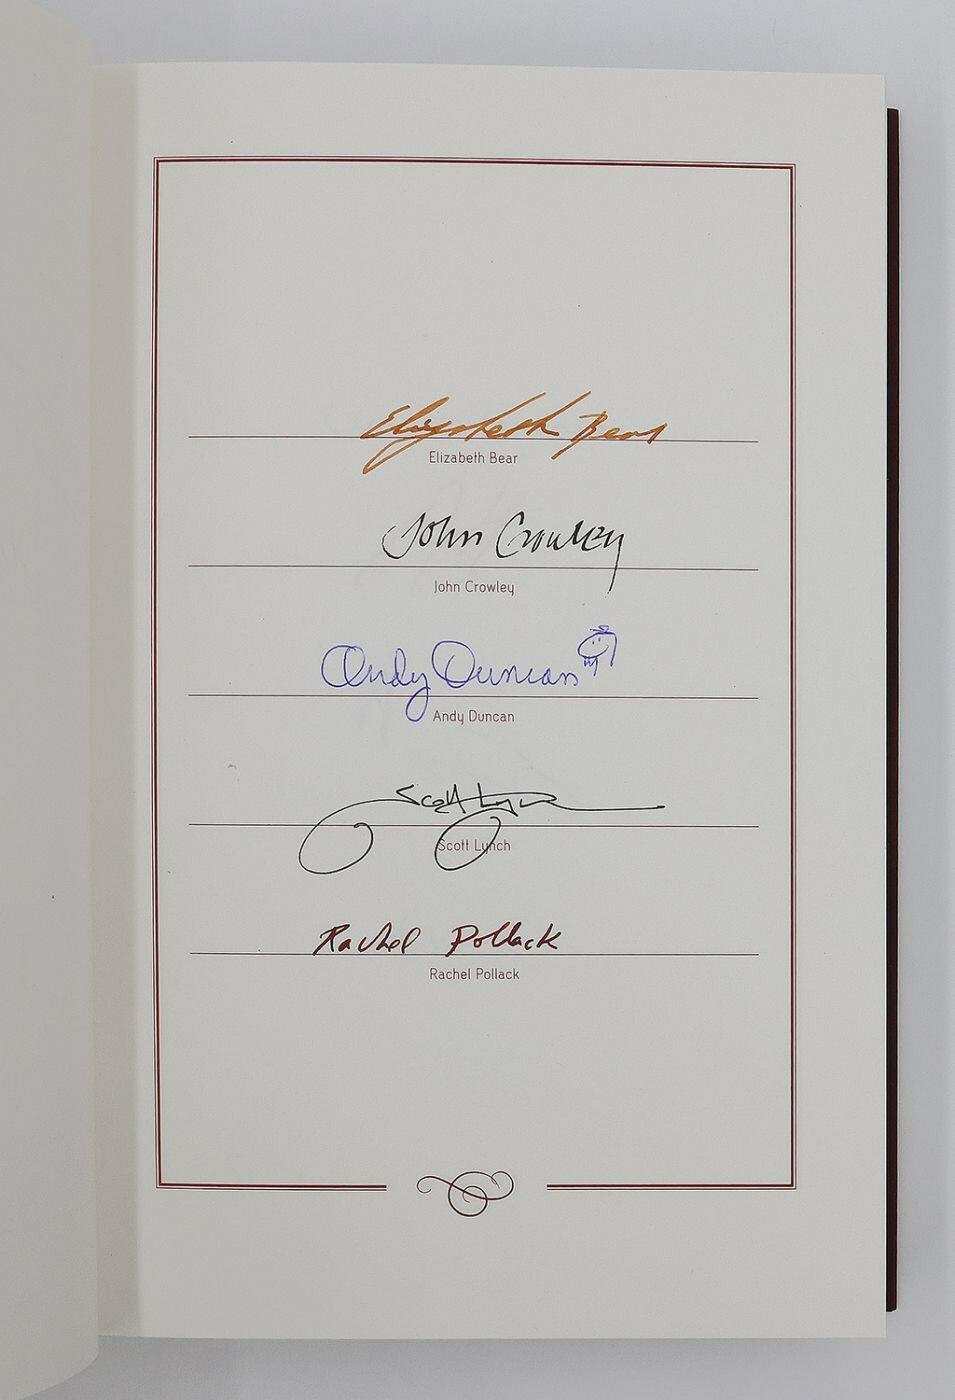 Elizabeth Bear
Elizabeth Bear
John Crowley
John Crowley
Andy Duncan
Andy Duncan
Scott Lynch
Scott Lynch
Rachel Pollack
Rachel Pollack